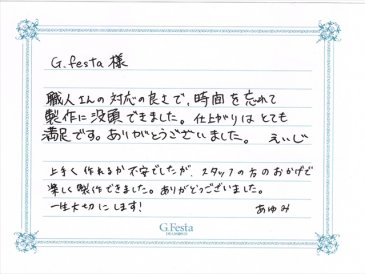 G.festa 様
職人さんの対応の良さで、時間を忘れて
製作に没頭できました。仕上がりはとても
満足です。ありがとうございました。 えいじ
上手く作れるか不安でしたが、スタッフの方のおかげで
楽しく製作できました。ありがとうございました。
一生大切にします! あゆみ
G.Festa